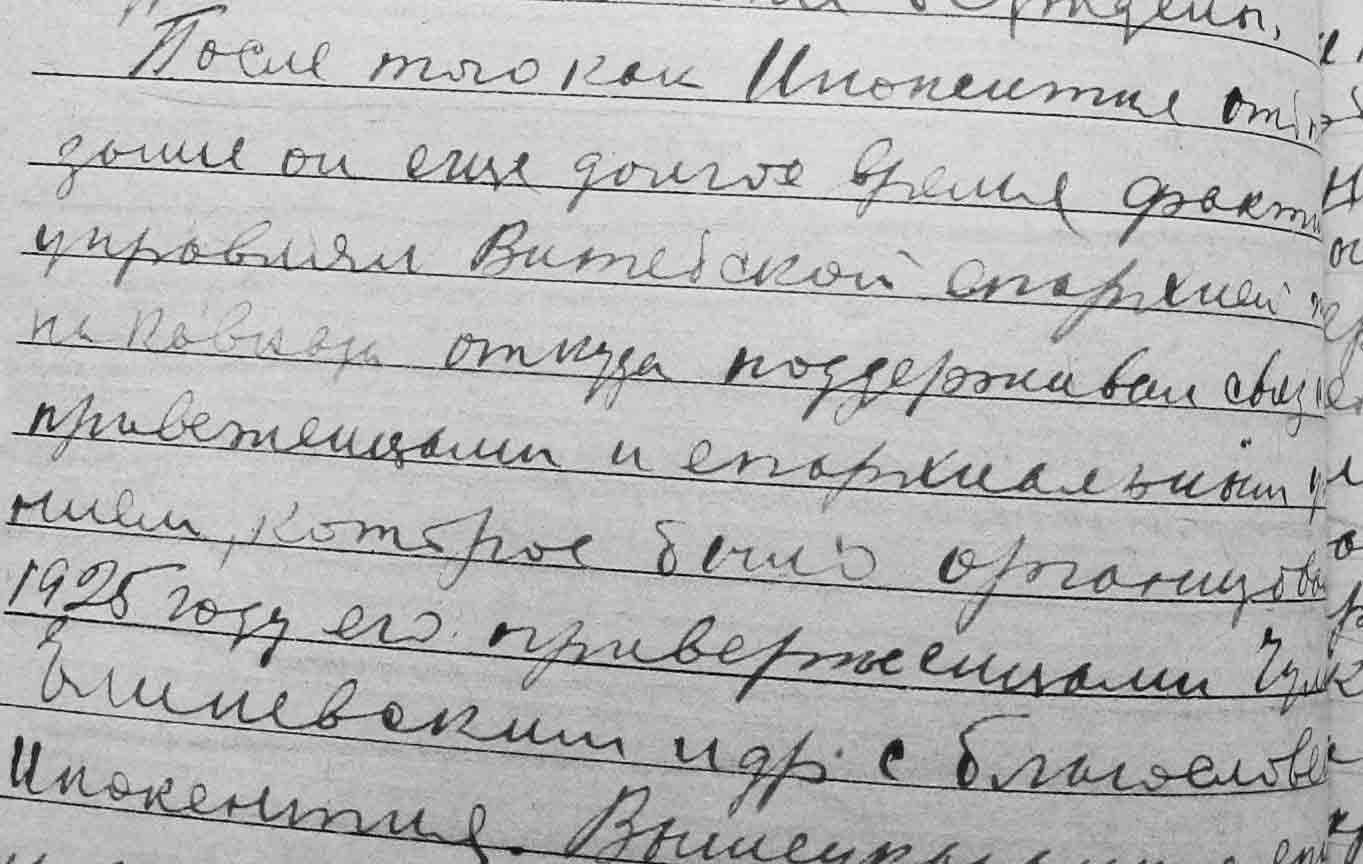 После того как Инокентия
он еще долгое время факти
управлял Витебской епархией
на Кавказ откуда поддерживал связ
приверженцами и епархиальным у
нием, которое было организова
1925 году его приверженцами
и др. с благослове
Инокентия.